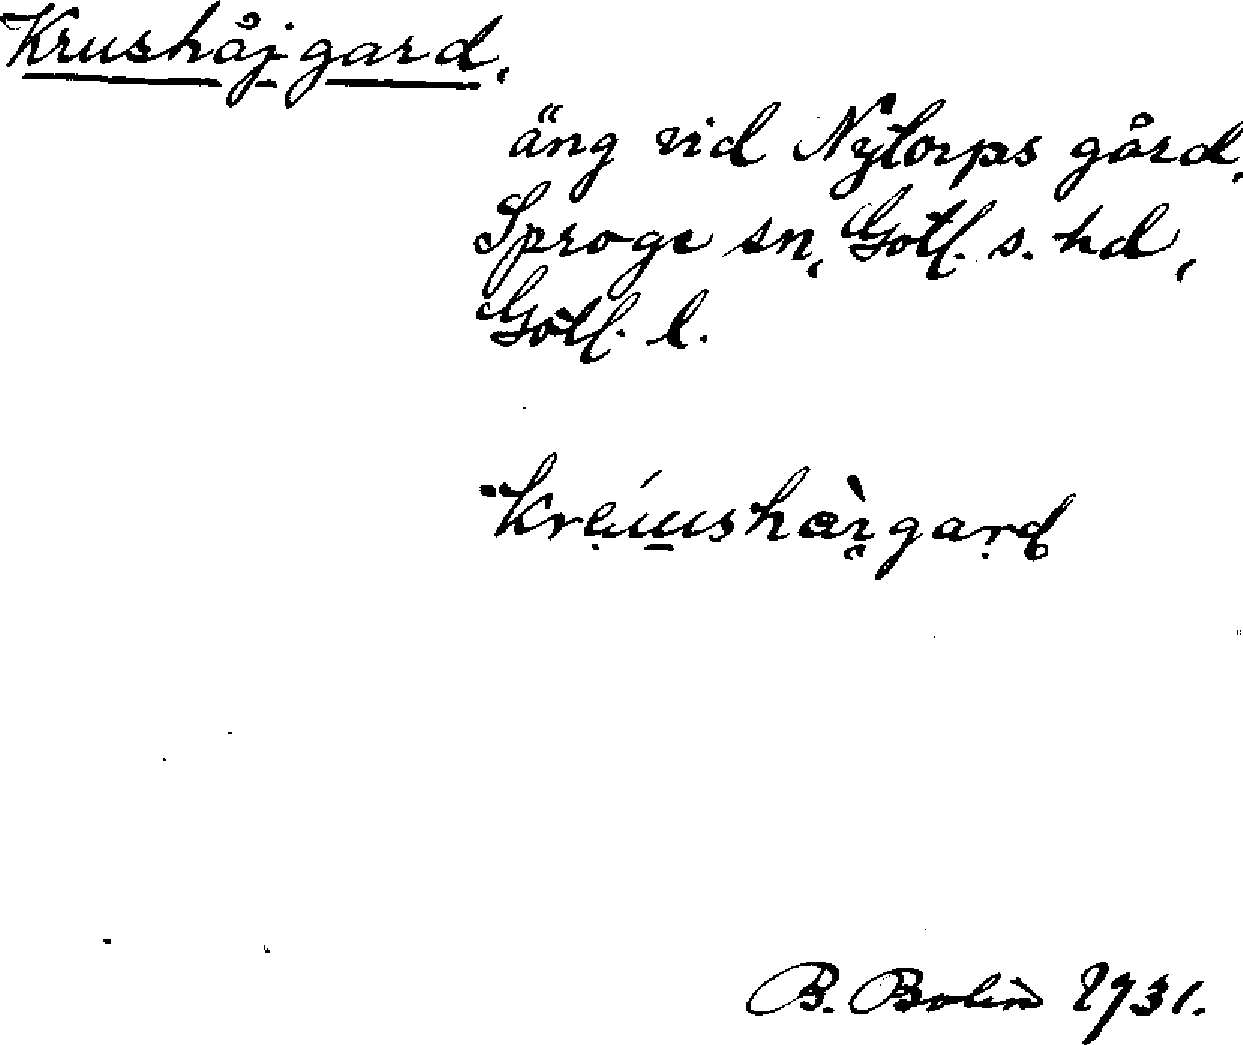 Krushåjgard,
äng vid Nytorps gård,
Sproge sn, Gotl. s. hd,
Gotl. l.
B. Bolin 1931.